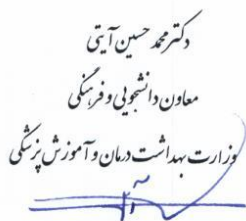 دکتر محمد حسین آیتی
معاون دانشجویی و فرهنگی
وزارت بهداشت درمان و آموزش پزشکی